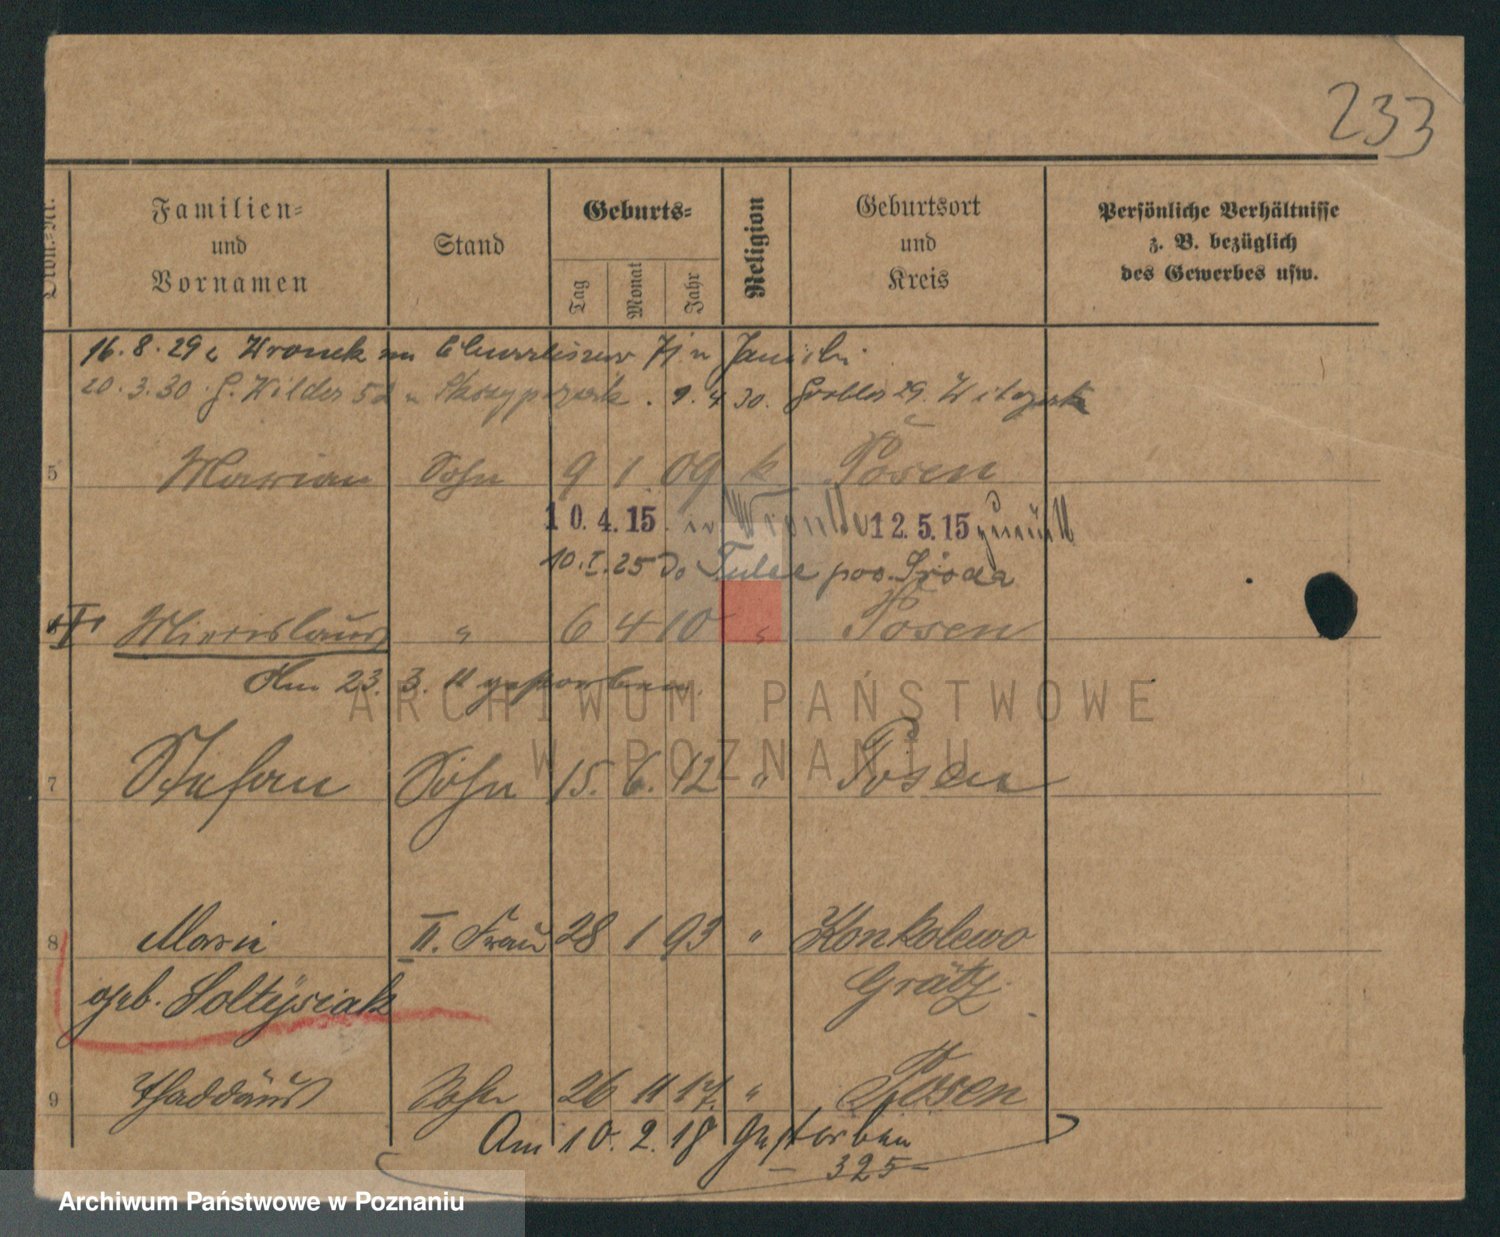 233
Ordn.-Nr.
Familien-
und
Vornamen
Stand
Geburts-
Tag
Monat
Jahr
Religion
Geburtsort
und
Kreis
Persönliche Verhältnisse
z. B. bezüglich
des Gewerbes usw.
16. 8. 29 71
20. 3. 30. G. Wilda 9. 4. 30.
5 Marian Sohn 9 1 09 k Posen
10.4.15. in 12.5.15 zurück
10.I.25 do Tulce pow. Środa
Miecislaus " 6 4 10 " Posen
Am 23. 3. 11 gestorben.
ARCHIWUM PAŃSTWOWE
W POZNANIU
7 Stefan Sohn 15. 6. 12 " Posen
8 Marie II. Frau 28 1 93 " Konkolewo
geb. Soltysiak Grätz.
9 Thaddäus Sohn 26 11 17. " Posen
Am 10. 2. 18 gestorben
– 325 –
Archiwum Państwowe w Poznaniu